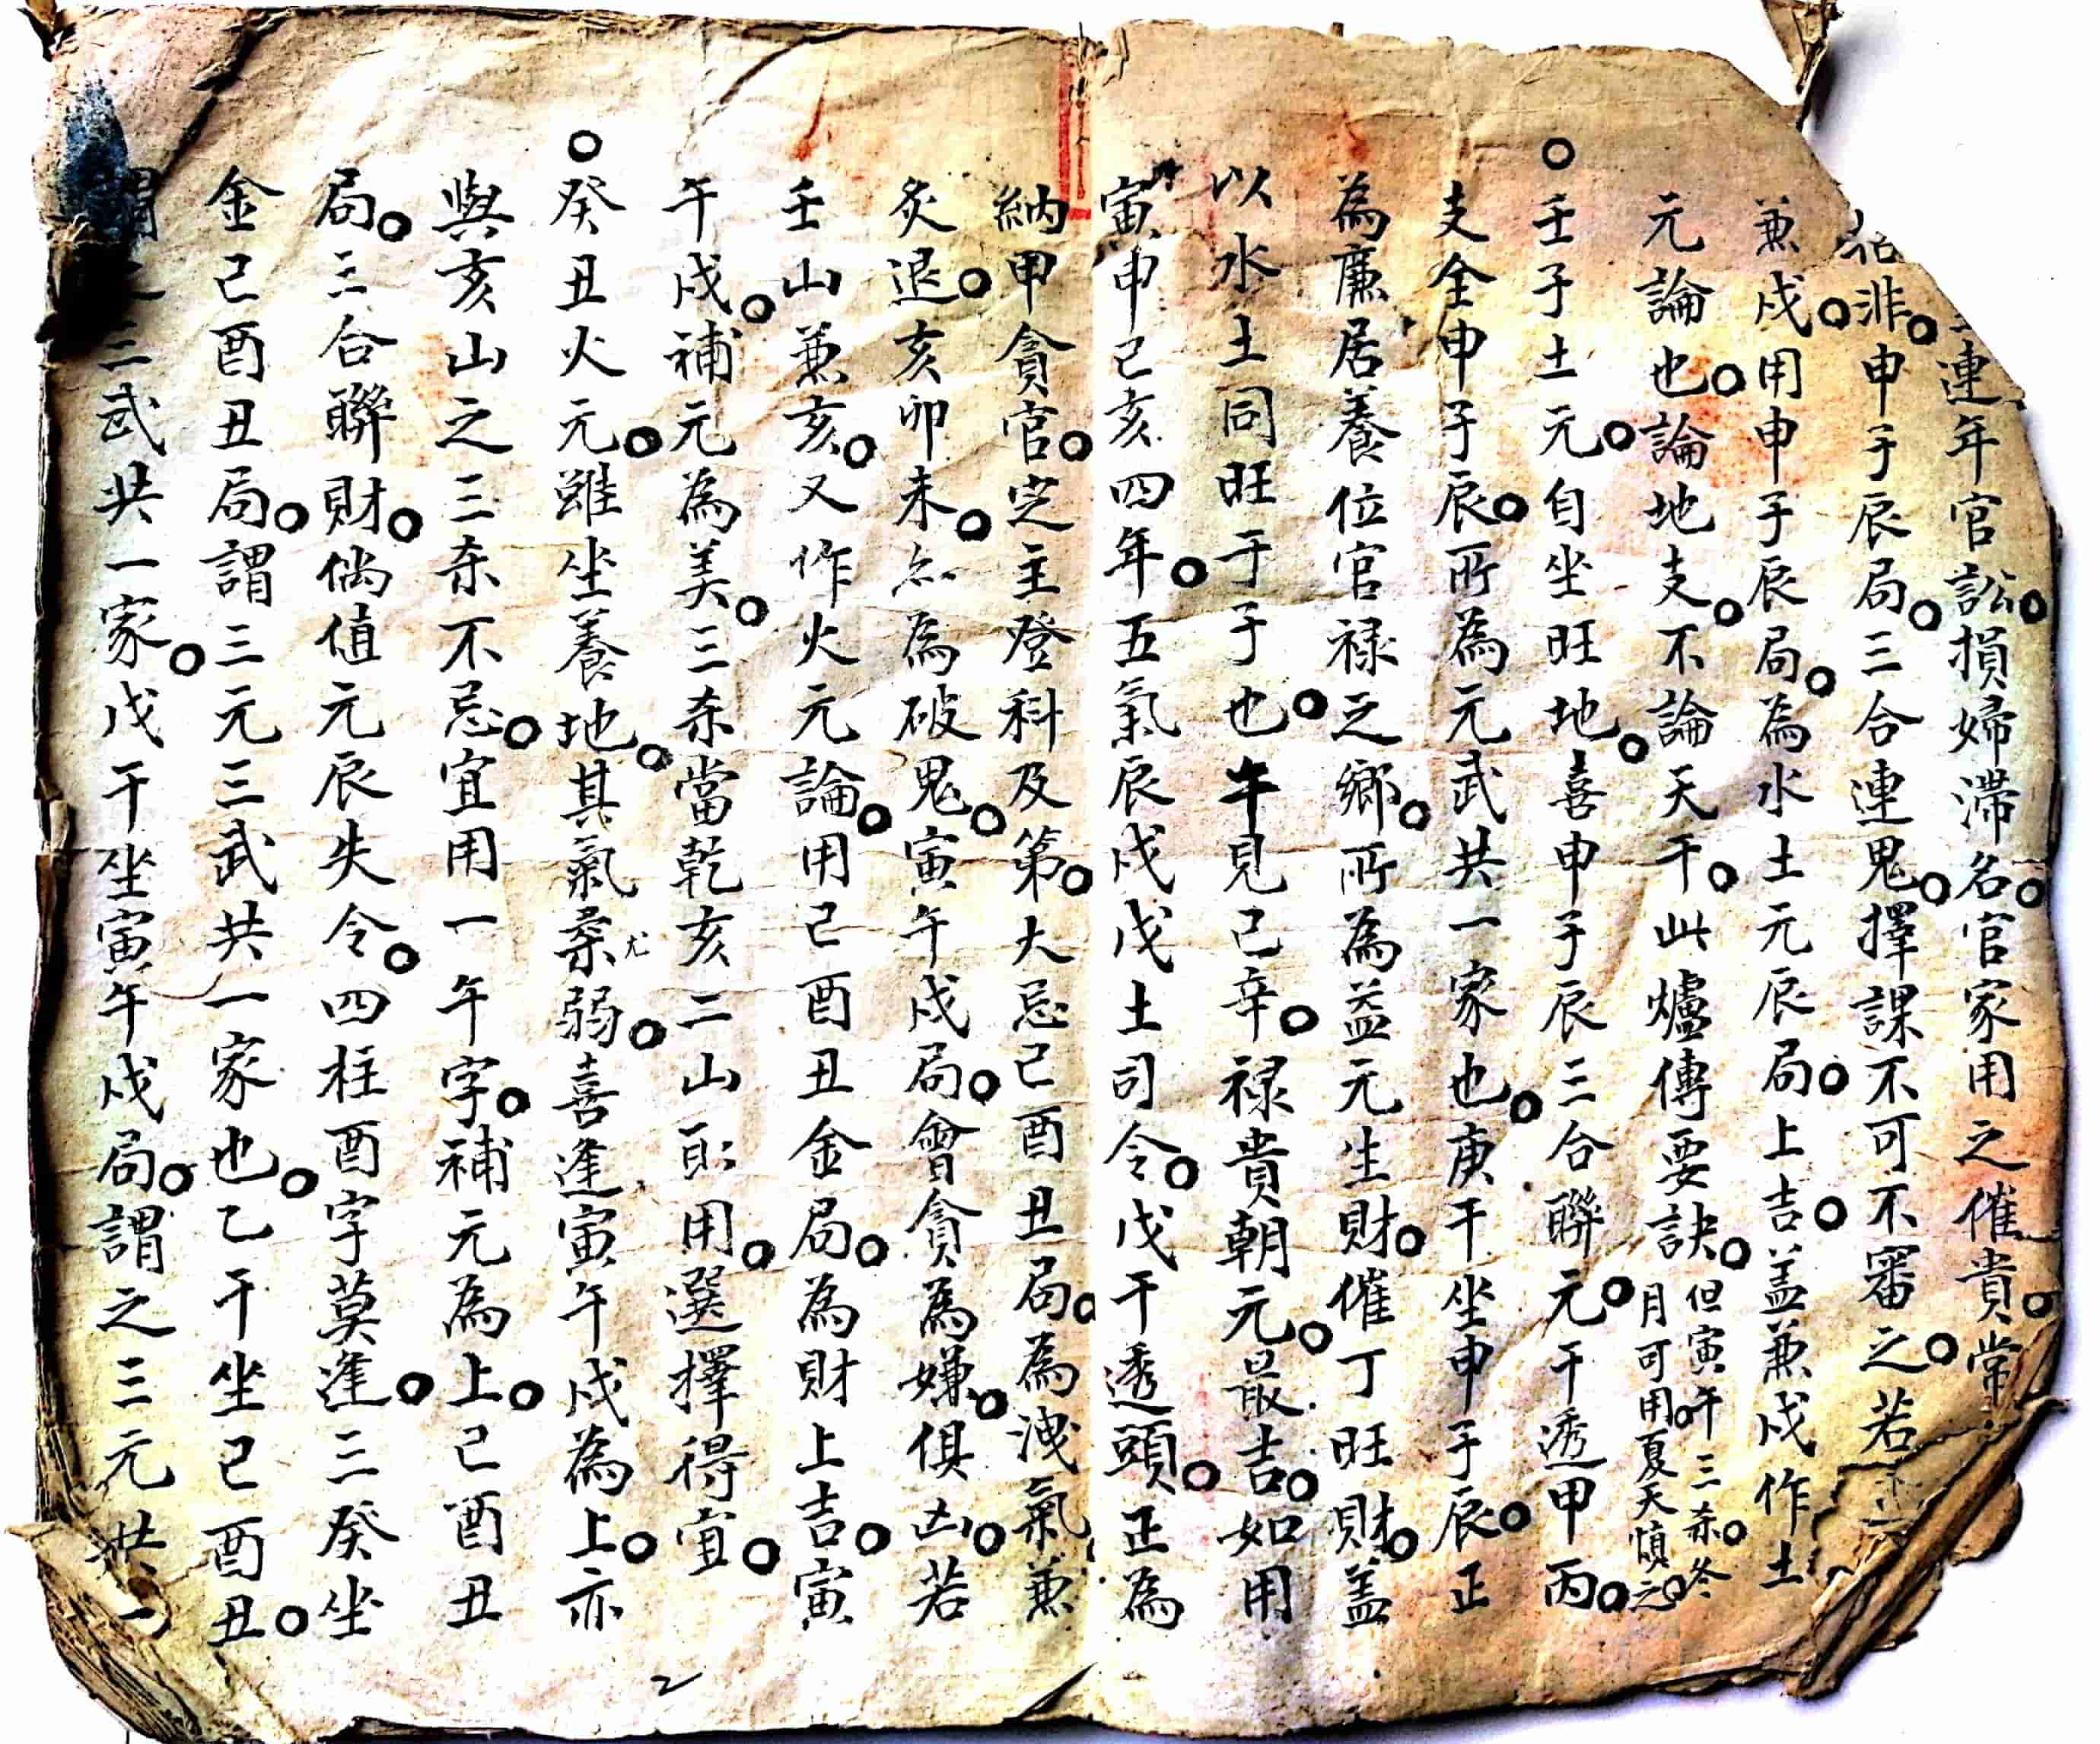 連年官訟。損婦滯名。官家用之催貴。常
非。申子辰局。三合連鬼。擇課不可不審之。若
兼戌。用申子辰局。為水土元辰局。上吉。盖兼戌作土
元論也。論地支。不論天干。此爐傳要訣。但寅午三杀。冬
月可用。夏天慎之。
○壬子土元。自坐旺地。喜申子辰三合聯元。干透甲丙。
支全申子辰。所為元武共一家也。庚干坐申子辰。正
為廉居養位官禄之鄉。所為益元生財。催丁旺財。盖
以水土同旺于子也。午見己辛。禄貴朝元。最吉。如用
寅申巳亥四年。五氣辰戌戊土司令。戊干透頭。正為
納甲貪官。定主登科及第。大忌巳酉丑局。為洩氣兼
炙退。亥卯未。亦為破鬼。寅午戌局。會貪為嫌。俱凶。若
壬山兼亥。又作火元論。用巳酉丑金局。為財上吉。寅
午戌。補元為美。三杀當乾亥二山取用。選擇得宜。
○癸丑火元。雖坐養地。其氣尤柔弱。喜逢寅午戌為上。亦
與亥山之三杀不忌。宜用一午字。補元為上。巳酉丑
局。三合聯財。倘值元辰失令。四柱酉字莫逢。三癸坐
金巳酉丑局。謂三元三武共一家也。乙干坐巳酉丑。
三武共一家。戊干坐寅午戌局。謂之三元共一